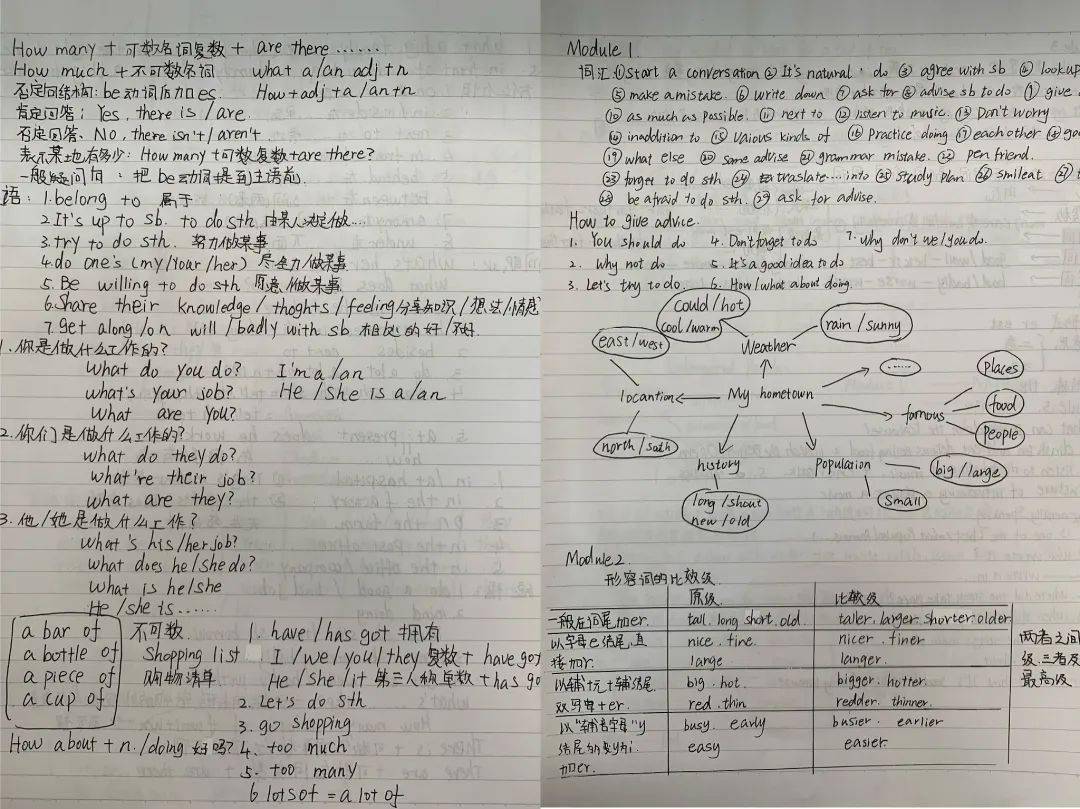 How many + 可数名词复数 + are there ......
How much + 不可数名词 what a/an adj+n
否定句结构: be动词后加es. How+adj+a/an+n
肯定回答: Yes, there is/are.
否定回答. No, there isn't/aren't.
表示某地有多少: How many +可数复数+are there?
一般疑问句: 把be动词提到主语前.
語: 1. belong to 属于
2. It's up to sb. to do sth. 由某人决定做...
3. try to do sth. 努力做某事
4. do one's (my/your/her) 尽全力/做某事
5. Be willing to do sth 愿意/做某事
6. Share their knowledge/thoghts/feeling 分享知识/想法/情感
7. get along/on will/badly with sb 相处的好/不好.
1. 你是做什么工作的?
What do you do? I'm a/an
what's your job? He/She is a/an
What are you?
2. 你们是做什么工作的?
what do they do?
what're their job?
what are they?
3. 他/她是做什么工作?
what's his/her job?
what does he/she do?
What is he/she
He/she is ......
a bar of
a bottle of
a piece of
a cup of
不可数
Shopping list
购物清单
1. have/has got 拥有
I/we/you/they 复数+have got
He/She/it 第三人称单数+has go
2. Let's do sth
3. go shopping
4. too much
5. too many
6 lots of = a lot of
How about + n./doing 好吗?
Module 1
词汇 ① Start a conversation ② It's natural · do ③ agree with sb ④ look up
⑤ make a mistake. ⑥ write down ⑦ ask for ⑧ advise sb to do ⑨ give
⑩ as much as possible. ⑪ next to ⑫ listen to music. ⑬ Don't worry
⑭ inaddition to ⑮ Vaious kinds of ⑯ Practice doing ⑰ each other ⑱
⑲ what else ⑳ same advise ㉑ grammar mistake. ㉒ pen friend.
㉓ forget to do sth ㉔ traslate ... into ㉕ Study plan ㉖ smile at ㉗
㉘ be afraid to do sth. ㉙ ask for advise.
How to give advice.
1. You should do 4. Don't forget to do 7. why don't we/you do.
2. why not do 5. It's a good idea to do
3. Let's try to do. 6. How/what about doing.
could/hot
cool/warm
rain/sunny
east/west
Weather
......
Places
locantion
My hometown
famous
food
People
north/sath
history
Population
big/large
Small
long/shout
new/old
Module 2
形容词的比较级.
原级. 比较级
一般在词尾加er. tall. long. short. old. taller. larger. shorter. older
以字母e结尾, 直接加r. nice. fine. nicer. finer
lange langer.
以辅+元+辅结尾 big. hot. bigger. hotter.
双写+er. red. thin redder. thinner.
以"辅音字母"y busy. early busier. earlier
结尾的变y为i easy easier.
加er.
两者之间
级. 三者及
最高级